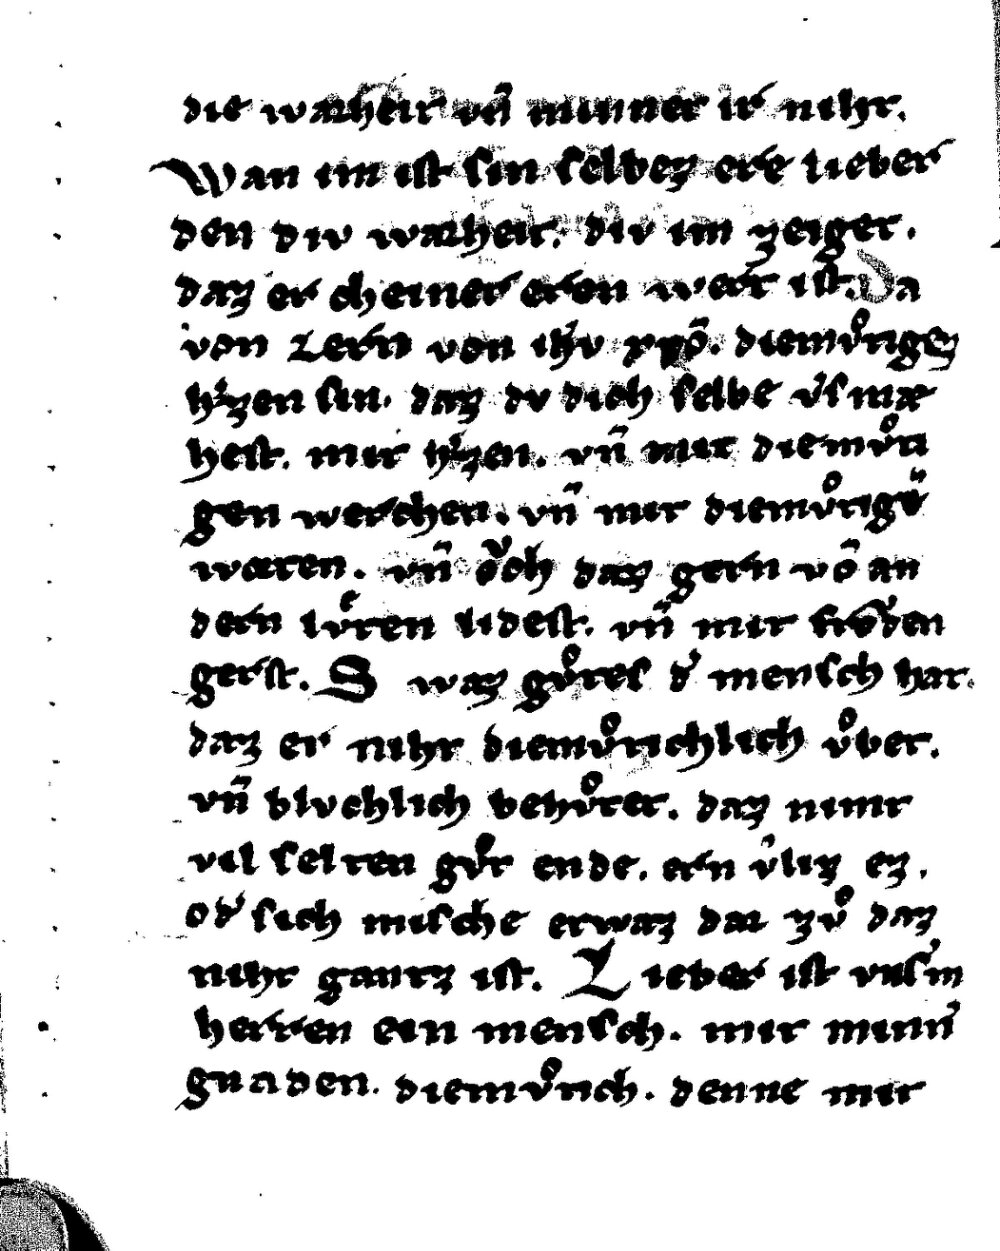 die warheit vn̄ minnet ir niht.
Wan im ist sin selbez ere lieber
den div warheit. div im zeiget.
daz er cheiner eren wert ist. Da
von lern von ihv xpō. diemvͦtigez
h'zen sin. daz dv dich selbe v'smæ
hest. mit h'zen. vn̄ mit diemvͦti
gen werchen. vn̄ mit diemvͦtigē
waten. vn̄ ovch daz gern vō an
dern lvͤten lidest. vn̄ mit frovden
gerst. Swaz gvͦtes d' mensch hat.
daz er niht diemvͦtichlich vͦbet.
vn̄ blvchlich behvͦtet. daz nimt
vil selten gvͦt ende. ern v'liz ez.
od' sich mische etwaz dar zvͦ daz
niht gantz ist. Lieber ist vns'm
herren ein mensch. mit minn'
gnaden. diemvͦtich. denne mit